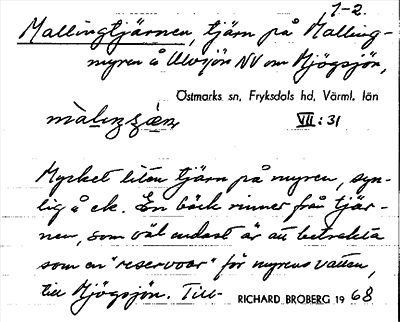 1-2.
Mallingtjärnen, tjärn på Malling-
myren å Ulvsjön NV om Mjögsjön,
Östmarks sn, Fryksdals hd, Värml. län
VII : 31
Mycket liten tjärn på myren, syn-
lig å ek. En bäck rinner från tjär-
nen, som väl endast är att betrakta
som en "reservoar" för myrens vatten,
till Mjögsjön. Till-
RICHARD BROBERG 1968